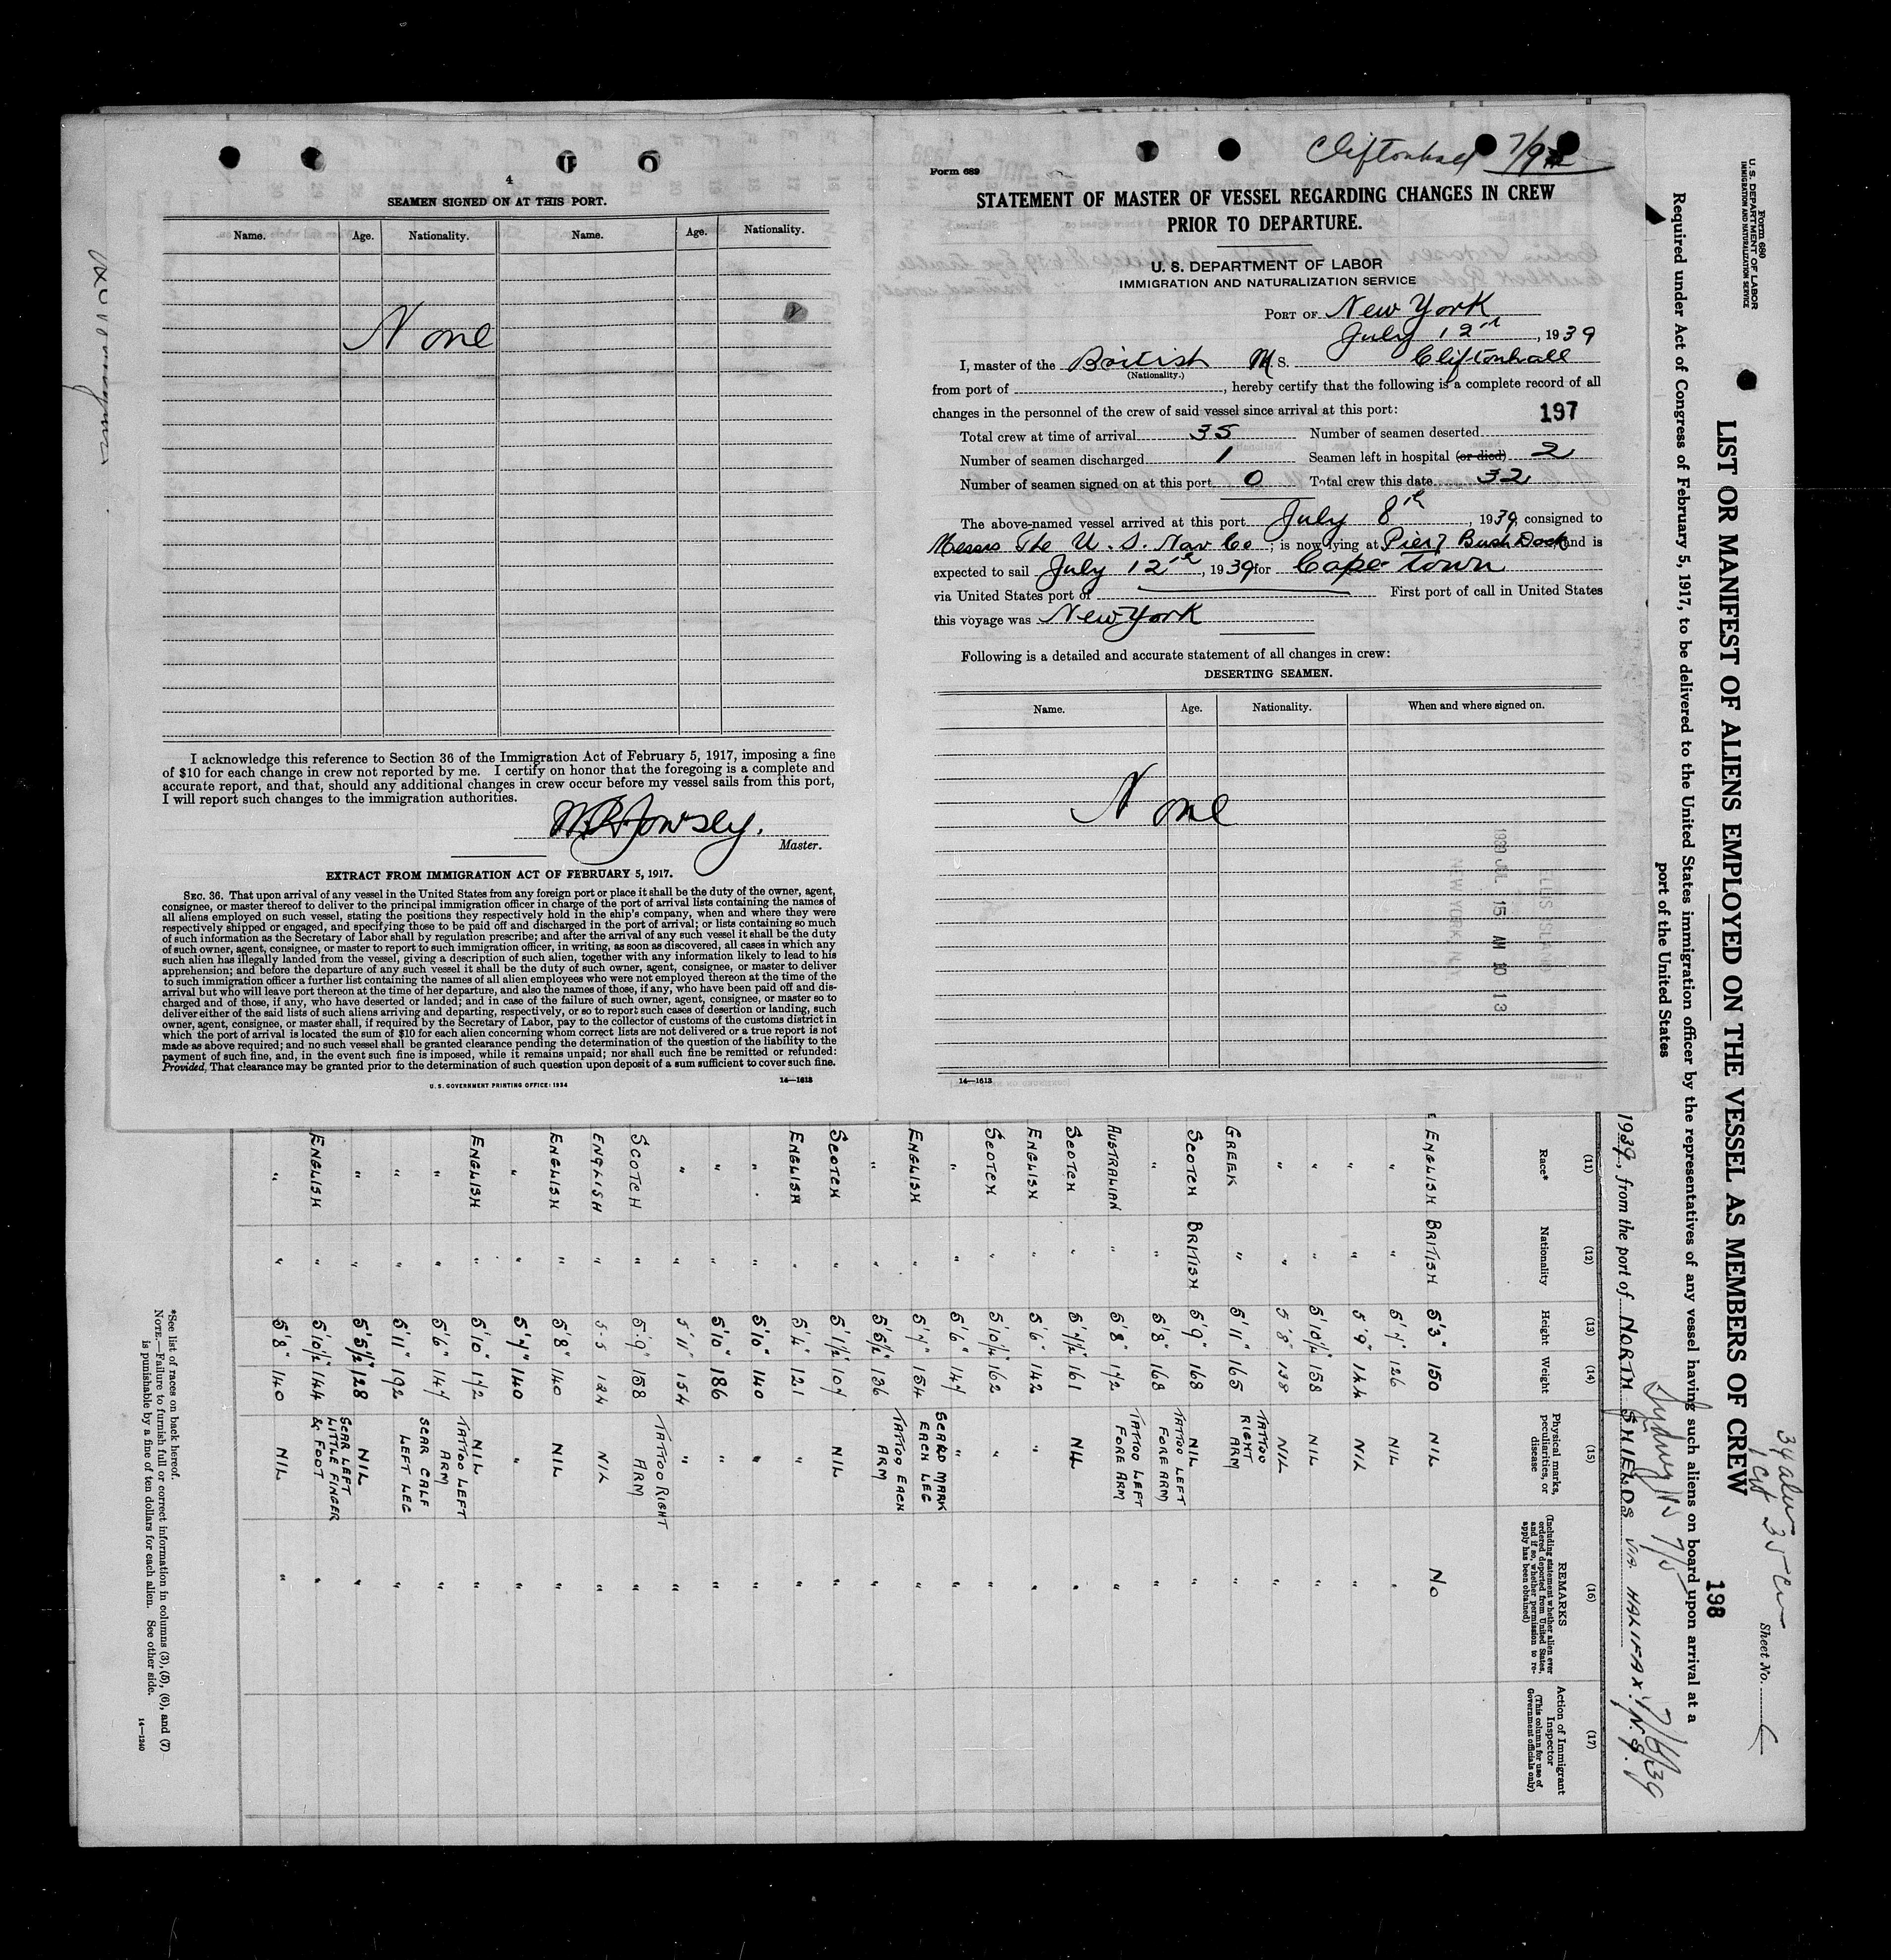 4
SEAMEN SIGNED ON AT THIS PORT.
Name. Age. Nationality. Name. Age. Nationality.
None
I acknowledge this reference to Section 36 of the Immigration Act of February 5, 1917, imposing a fine
of $10 for each change in crew not reported by me. I certify on honor that the foregoing is a complete and
accurate report, and that, should any additional changes in crew occur before my vessel sails from this port,
I will report such changes to the immigration authorities.
Master.
EXTRACT FROM IMMIGRATION ACT OF FEBRUARY 5, 1917.
SEC. 36. That upon arrival of any vessel in the United States from any foreign port or place it shall be the duty of the owner, agent,
consignee, or master thereof to deliver to the principal immigration officer in charge of the port of arrival lists containing the names of
all aliens employed on such vessel, stating the positions they respectively hold in the ship's company, when and where they were
respectively shipped or engaged, and specifying those to be paid off and discharged in the port of arrival; or lists containing so much
of such information as the Secretary of Labor shall by regulation prescribe; and after the arrival of any such vessel it shall be the duty
of such owner, agent, consignee, or master to report to such immigration officer, in writing, as soon as discovered, all cases in which any
such alien has illegally landed from the vessel, giving a description of such alien, together with any information likely to lead to his
apprehension; and before the departure of any such vessel it shall be the duty of such owner, agent, consignee, or master to deliver
to such immigration officer a further list containing the names of all alien employees who were not employed thereon at the time of the
arrival but who will leave port thereon at the time of her departure, and also the names of those, if any, who have been paid off and dis-
charged and of those, if any, who have deserted or landed; and in case of the failure of such owner, agent, consignee, or master so to
deliver either of the said lists of such aliens arriving and departing, respectively, or so to report such cases of desertion or landing, such
owner, agent, consignee, or master shall, if required by the Secretary of Labor, pay to the collector of customs of the customs district in
which the port of arrival is located the sum of $10 for each alien concerning whom correct lists are not delivered or a true report is not
made as above required; and no such vessel shall be granted clearance pending the determination of the question of the liability to the
payment of such fine, and, in the event such fine is imposed, while it remains unpaid; nor shall such fine be remitted or refunded:
Provided, That clearance may be granted prior to the determination of such question upon deposit of a sum sufficient to cover such fine.
U. S. GOVERNMENT PRINTING OFFICE: 1934 14—1613
Cliftonhall
Form 689
STATEMENT OF MASTER OF VESSEL REGARDING CHANGES IN CREW
PRIOR TO DEPARTURE.
U. S. DEPARTMENT OF LABOR
IMMIGRATION AND NATURALIZATION SERVICE
PORT OF New York
July 12th, 1939
I, master of the British M.S. Cliftonhall
(Nationality.)
from port of , hereby certify that the following is a complete record of all
changes in the personnel of the crew of said vessel since arrival at this port: 197
Total crew at time of arrival 35 Number of seamen deserted
Number of seamen discharged 1 Seamen left in hospital (or died) 2
Number of seamen signed on at this port 0 Total crew this date 32
The above-named vessel arrived at this port July 8th, 1939, consigned to
Messrs The U. S. Nav Co; is now lying at Pier 7 Bush Dock and is
expected to sail July 12th, 1939 for Cape Town
via United States port of First port of call in United States
this voyage was New York
Following is a detailed and accurate statement of all changes in crew:
DESERTING SEAMEN.
Name. Age. Nationality. When and where signed on.
None
1939 JUL 15 AM 10 13
ELLIS ISLAND
NEW YORK, N.Y.
14—1613
Form 680
U. S. DEPARTMENT OF LABOR
IMMIGRATION AND NATURALIZATION SERVICE
Sheet No.
LIST OR MANIFEST OF ALIENS EMPLOYED ON THE VESSEL AS MEMBERS OF CREW 198
Required under Act of Congress of February 5, 1917, to be delivered to the United States immigration officer by the representatives of any vessel having such aliens on board upon arrival at a
port of the United States
1939, from the port of NORTH SHIELDS VIA HALIFAX. N.S.
Sydney NS 7/5
7/8/39
(11) (12) (13) (14) (15) (16) (17)
Race* Nationality Height Weight Physical marks, peculiarities, or disease REMARKS (Including statement whether alien ever ordered deported from United States, and if so, whether permission to re-apply has been obtained) Action of Immigrant Inspector (This column for use of Government officials only)
ENGLISH BRITISH 5'3" 150 NIL No
" " 5'7" 126 NIL "
" " 5'9" 144 NIL "
" " 5'10½ 158 NIL "
" " 5'8" 138 NIL "
GREEK " 5'11" 165 TATTOO RIGHT ARM "
SCOTCH BRITISH 5'9" 168 NIL "
" " 5'8" 168 TATTOO LEFT FORE ARM "
AUSTRALIAN " 5'8" 172 TATTOO LEFT FORE ARM "
SCOTCH " 5'7½" 161 NIL "
ENGLISH " 5'6" 142 " "
SCOTCH " 5'10¼" 162 " "
" " 5'6" 147 " "
ENGLISH " 5'7" 154 SCARD MARK EACH LEG "
" " 5'5½" 136 TATTOO EACH ARM "
SCOTCH " 5'1½" 107 NIL "
ENGLISH " 5'4" 121 " "
" " 5'10" 140 " "
" " 5'10" 186 " "
" " 5'11" 154 " "
SCOTCH " 5'9" 158 TATTOO RIGHT ARM "
ENGLISH " 5-5 124 NIL "
ENGLISH " 5'8" 140 NIL "
" " 5'7" 140 " "
ENGLISH " 5'10" 172 NIL "
" " 5'6" 147 TATTOO LEFT ARM "
" " 5'11" 192 SCAR CALF LEFT LEG "
" " 5'5½" 128 NIL "
ENGLISH " 5'10½" 144 SCAR LEFT LITTLE FINGER & FOOT "
" " 5'8" 140 NIL "
*See list of races on back hereof.
NOTE.—Failure to furnish full or correct information in columns (3), (5), (6), and (7)
is punishable by a fine of ten dollars for each alien. See other side.
14—1240